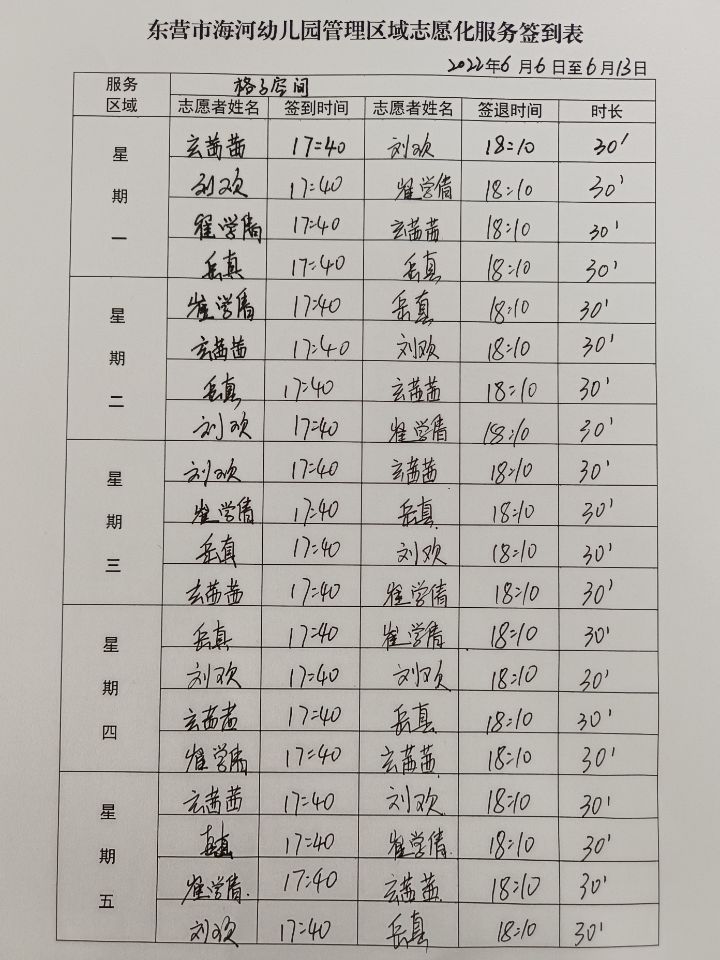 东营市海河幼儿园管理区域志愿化服务签到表
2022年6月6日至6月13日
服务区域 格子空间
志愿者姓名 签到时间 志愿者姓名 签退时间 时长
星期一
玄茜茜 17:40 刘欢 18:10 30'
刘欢 17:40 崔学倩 18:10 30'
崔学倩 17:40 玄茜茜 18:10 30'
岳真 17:40 岳真 18:10 30'
星期二
崔学倩 17:40 岳真 18:10 30'
玄茜茜 17:40 刘欢 18:10 30'
岳真 17:40 玄茜茜 18:10 30'
刘欢 17:40 崔学倩 18:10 30'
星期三
刘欢 17:40 玄茜茜 18:10 30'
崔学倩 17:40 岳真 18:10 30'
岳真 17:40 刘欢 18:10 30'
玄茜茜 17:40 崔学倩 18:10 30'
星期四
岳真 17:40 崔学倩 18:10 30'
刘欢 17:40 刘欢 18:10 30'
玄茜茜 17:40 岳真 18:10 30'
崔学倩 17:40 玄茜茜 18:10 30'
星期五
玄茜茜 17:40 刘欢 18:10 30'
真 17:40 崔学倩 18:10 30'
崔学倩 17:40 玄茜茜 18:10 30'
刘欢 17:40 岳真 18:10 30'